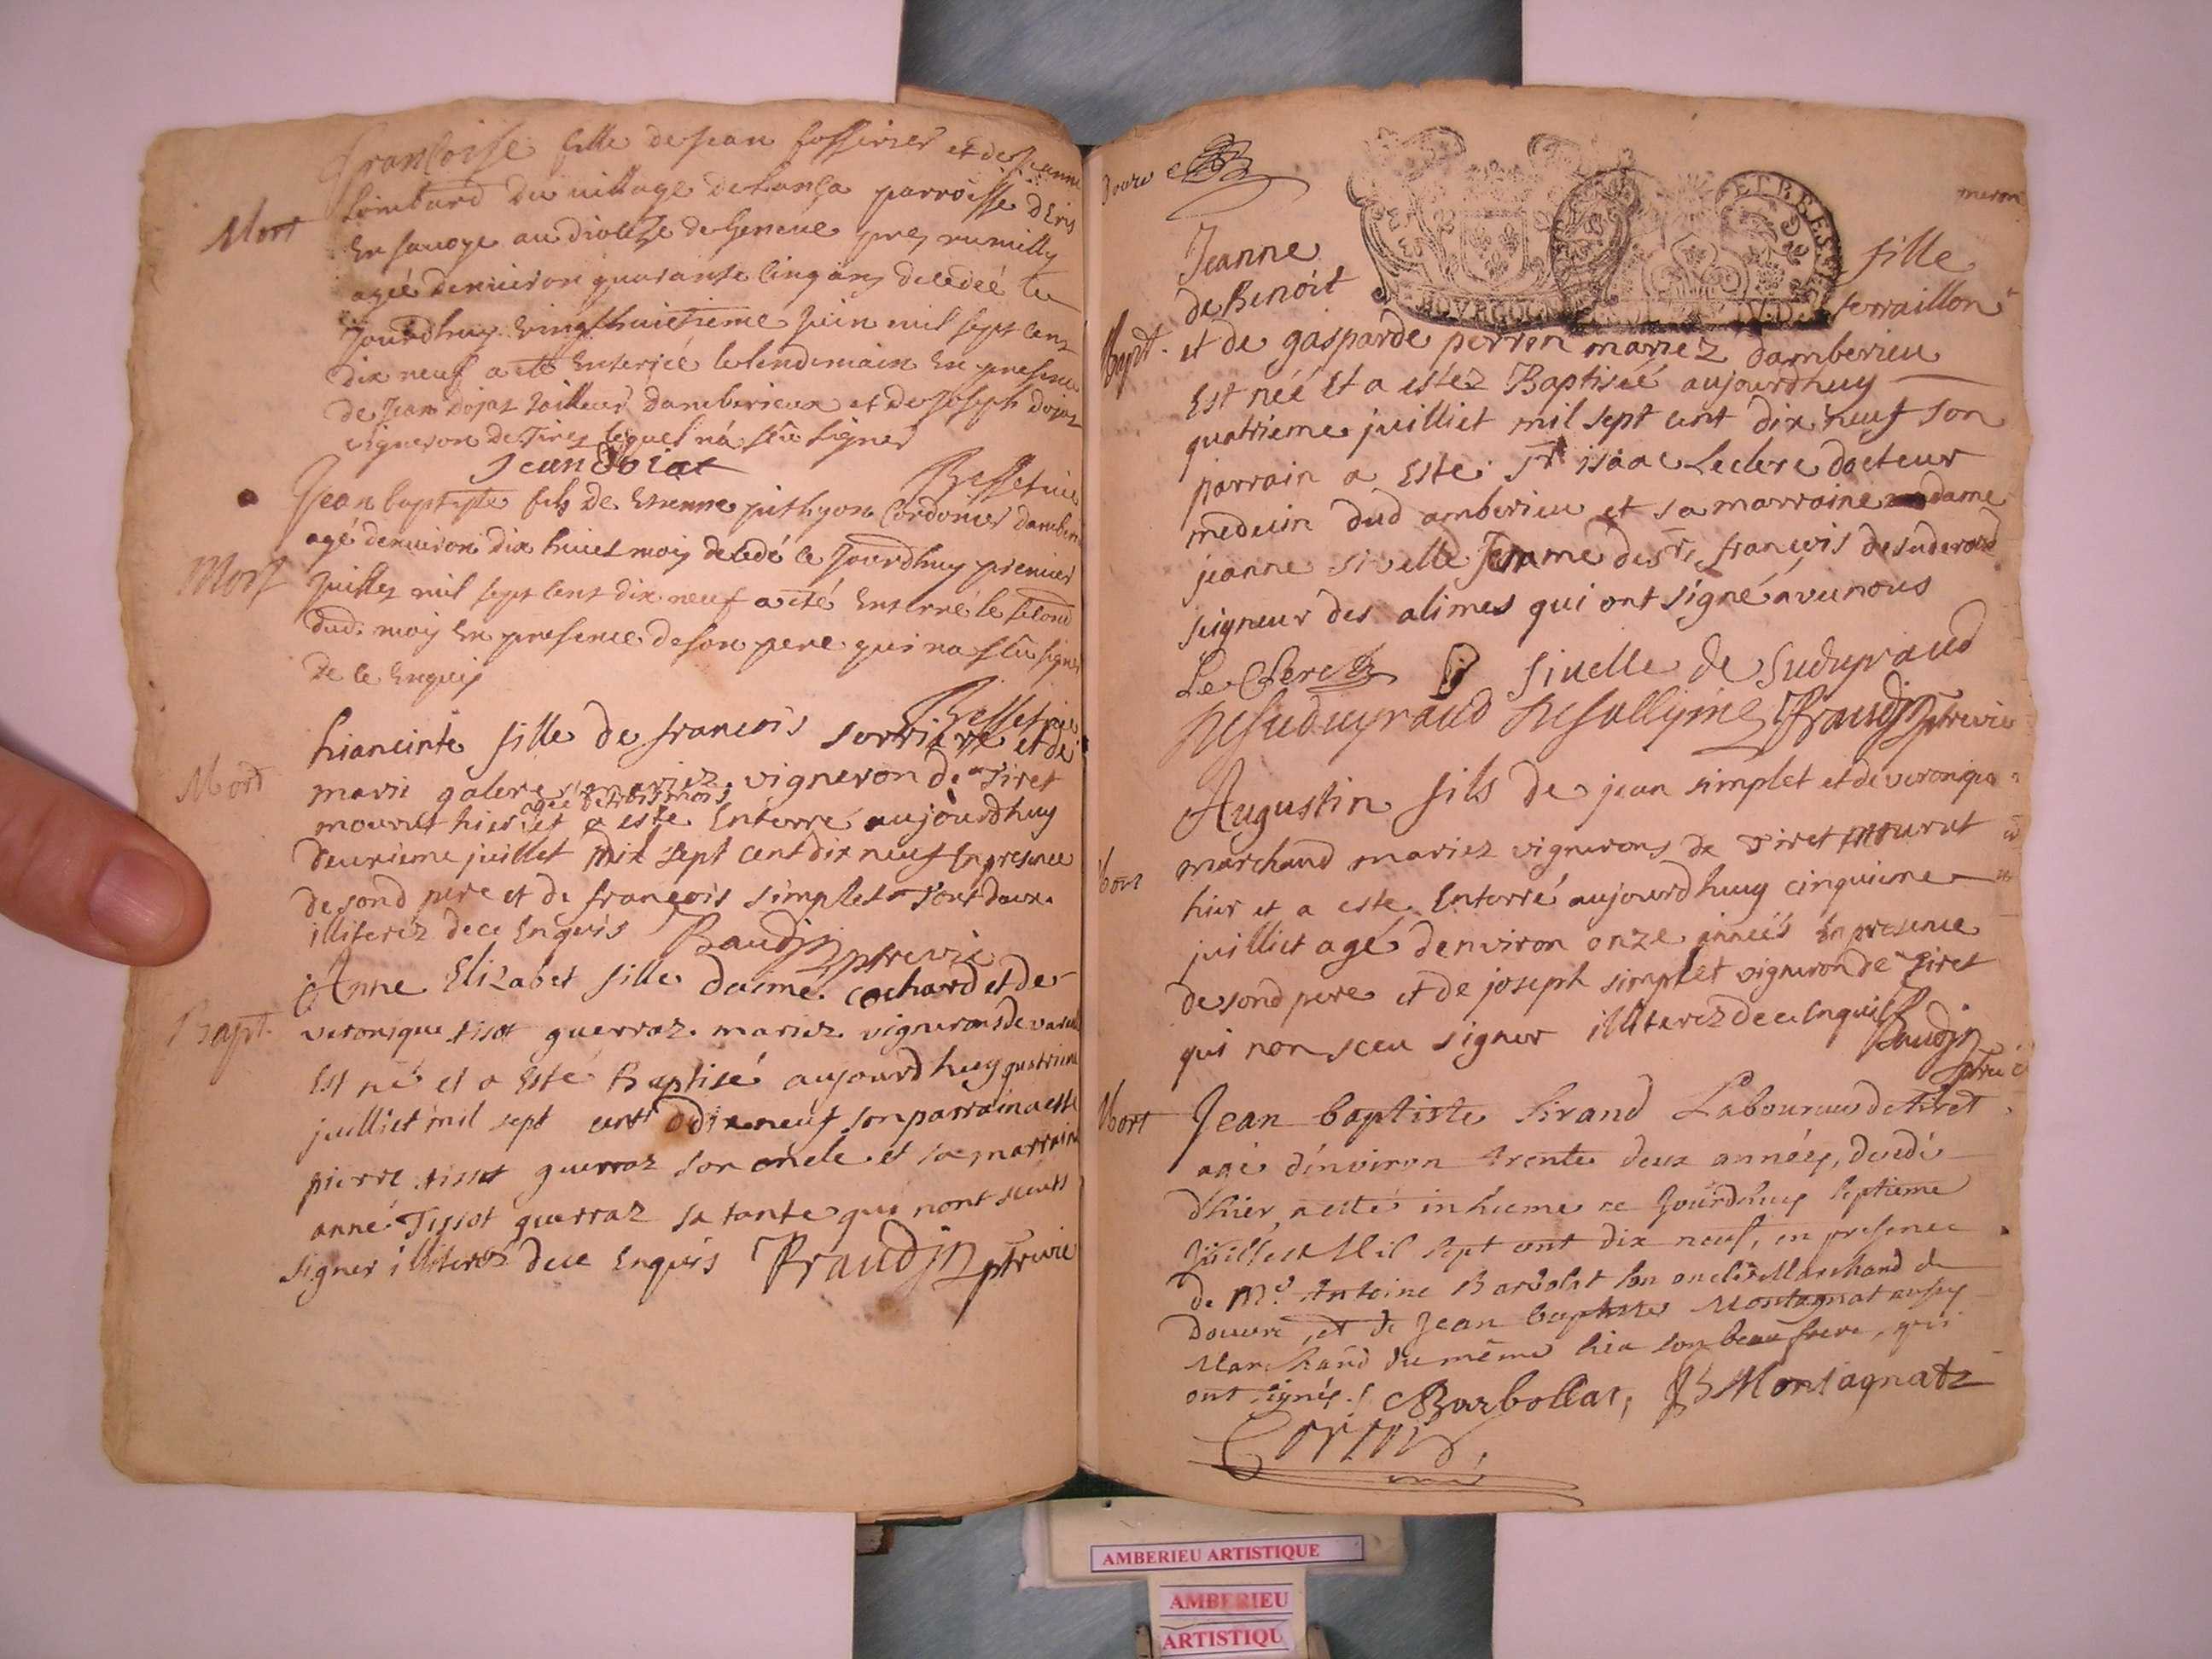 Françoise fille de Jean fossirier et de Jeanne
Lombard du village de Lansa parroisse dEris
En Savoye au dioceze de Geneve prez rumilly
Mort
agée denviron quarante cinq ans decedée ce
Jourdhuy vingthuictieme Juin mil sept cent
dix neuf a eté Enterrée le lendemain En presence
de Jean Dojat tailleur damberieux et de Joseph Dojat
vigneron de Tirez lequel n'a sçu signer
Jean Doiat
Bessetrie
Jean baptiste fils de Etienne pithyon Cordonier damberieu
agé denviron dix huict mois decedé ce Jourdhuy premier
Mort
Juillet mil sept cent dix neuf a eté Enterré le second
dud. moy En presence de son pere qui na sçu signer
de ce Enquis
Bessetrie
hiancinte fille de francois sorriere et de
Mort
marie galere mariez vigneron de Tiret
agée de trois mois
mourut hier et a este Enterré aujourdhuy
deuxieme juillet mil sept cent dix neuf En presence
de sond pere et de françois simplet tout deux
illiterez de ce Enquis Baudin ptre vic
Anne Elizabet fille daimé cochard et de
Bapt.
veronique tisot guerraz mariez vignerons de vareil
Est né et a Esté Baptisé aujourdhuy quatrieme
juilliet mil sept cent dix neuf son parrain a esté
pierre tissot guerraz son oncle et sa marraine
anne Tissot guerraz sa tante qui nont sceuts
signer illiterez de ce Enquis Baudin ptre vic
douze
meron
BOURGOGNE
ET BRESSE
Jeanne fille
de Benoit serraillon
Bapt.
et de gasparde perren mariez damberieu
Est née Et a estez Baptisée aujourdhuy
quatrieme juilliet mil sept cent dix neuf son
parrain a Este Sr isaac Leclerc docteur
medecin dud amberieu et sa marraine dame
jeanne sivelle femme de Sr françois de suderaud
seigneur des alimes qui ont signé avec nous
Le Clerc sivelle de Suduyraud
Desuduyraud Desallyme Baudin ptre vic
Augustin fils de jean simplet et de veronique
marchand mariez vignerons de Tiret mourut
Mort
hier et a este Enterré aujourdhuy cinquieme
juilliet agé denviron onze années En presence
de sond pere et de joseph simplet vigneron de Tiret
qui non sceu signer illiterez de ce Enquis
Baudin
ptre vic
Mort
Jean baptiste Sirand Laboureur de tiret
agé d'environ trente deux années, decedé
d'hier, a esté inhumé ce Jourdhuy septieme
Juillet Mil sept cent dix neuf, en presence
de Me. Antoine Barbolat son oncle Marchand de
douvre, et de Jean baptiste Montagnat aussy
Marchand du même lieu son beau frere, qui
ont signés. Barbollat, JB Montagnat
curé
AMBERIEU ARTISTIQUE
AMBERIEU
ARTISTIQU